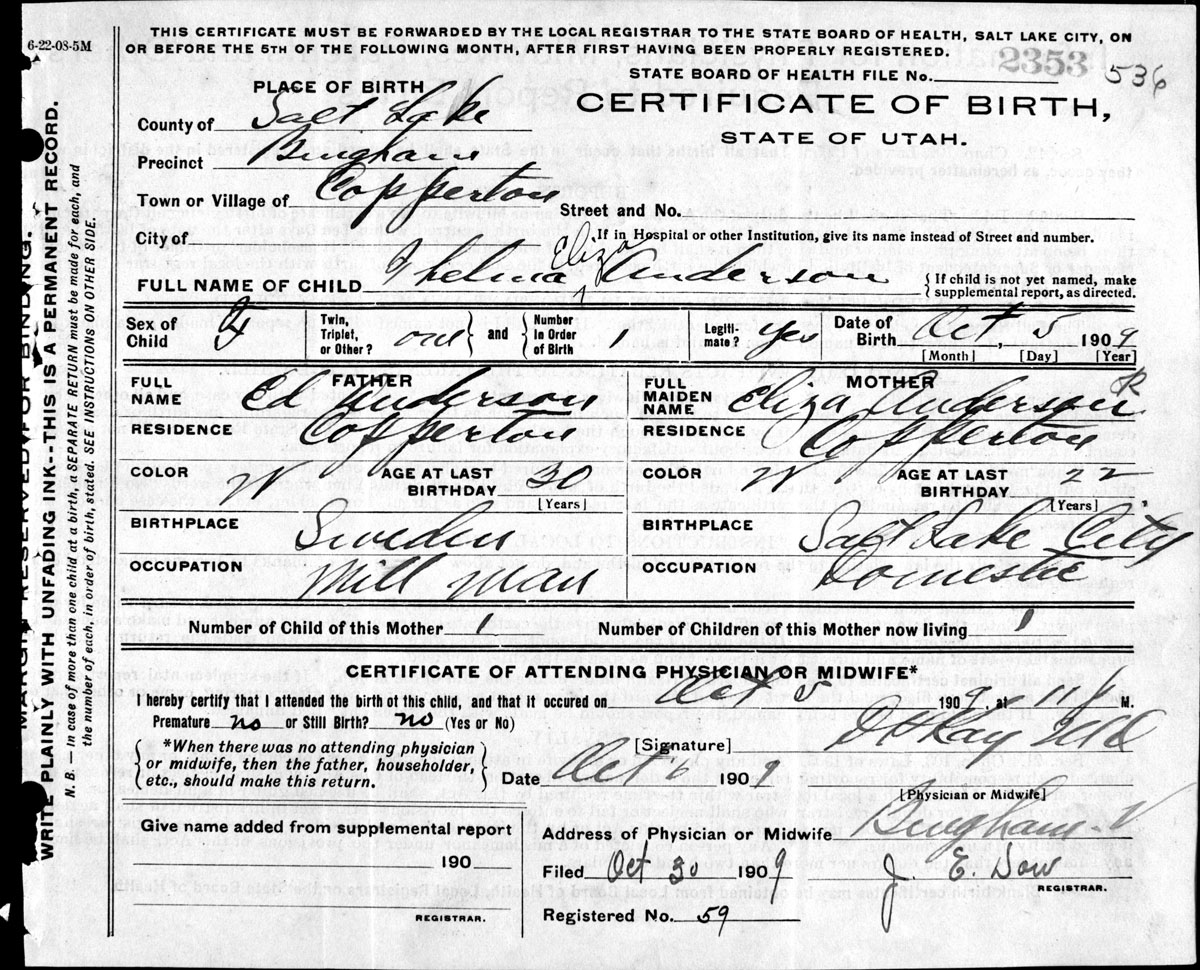 6-22-08-5M
THIS CERTIFICATE MUST BE FORWARDED BY THE LOCAL REGISTRAR TO THE STATE BOARD OF HEALTH, SALT LAKE CITY, ON
OR BEFORE THE 5TH OF THE FOLLOWING MONTH, AFTER FIRST HAVING BEEN PROPERLY REGISTERED.
STATE BOARD OF HEALTH FILE No. 2353 536
CERTIFICATE OF BIRTH,
STATE OF UTAH.
PLACE OF BIRTH
County of Salt Lake
Precinct Bingham
Town or Village of Copperton
Street and No.
City of
If in Hospital or other Institution, give its name instead of Street and number.
FULL NAME OF CHILD Thelma Eliza Anderson
{If child is not yet named, make
supplemental report, as directed.
Sex of Child
Twin, Triplet, or Other? one } and { Number in Order of Birth
Legiti-mate? yes
Date of Birth Oct, 5 1909
[Month] [Day] [Year]
FATHER
FULL NAME Ed Anderson
RESIDENCE Copperton
COLOR W AGE AT LAST BIRTHDAY 30
[Years]
BIRTHPLACE Sweden
OCCUPATION Mill Man
MOTHER
FULL MAIDEN NAME Eliza Anderson
RESIDENCE Copperton
COLOR W AGE AT LAST BIRTHDAY 22
[Years]
BIRTHPLACE Salt Lake City
OCCUPATION Domestic
Number of Child of this Mother 1 Number of Children of this Mother now living 1
CERTIFICATE OF ATTENDING PHYSICIAN OR MIDWIFE*
I hereby certify that I attended the birth of this child, and that it occured on Oct 5 1909, at 11 M.
Premature no or Still Birth? no (Yes or No)
{*When there was no attending physician
or midwife, then the father, householder,
etc., should make this return.}
[Signature] Kay MD
Date Oct 1909
[Physician or Midwife]
Give name added from supplemental report
190
REGISTRAR.
Address of Physician or Midwife Bingham
Filed Oct 30 1909 J. E. Dow
REGISTRAR.
Registered No. 59
MARGIN RESERVED FOR BINDING.
WRITE PLAINLY WITH UNFADING INK--THIS IS A PERMANENT RECORD.
N. B. — In case of more than one child at a birth, a SEPARATE RETURN must be made for each, and
the number of each, in order of birth, stated. SEE INSTRUCTIONS ON OTHER SIDE.